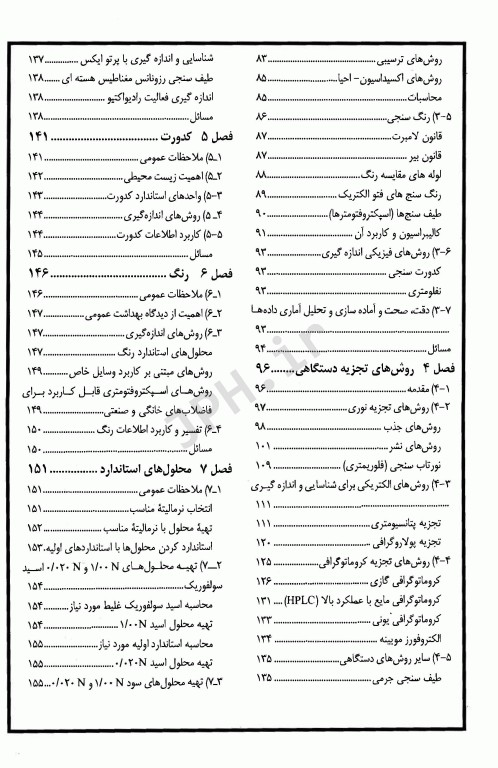 روش‌های ترسیبی ........ ۸۳
روش‌های اکسیداسیون- احیا ........ ۸۵
محاسبات ........ ۸۵
۳-۵) رنگ سنجی ........ ۸۶
قانون لامبرت ........ ۸۷
قانون بیر ........ ۸۷
لوله های مقایسه رنگ ........ ۸۸
رنگ سنج های فتو الکتریک ........ ۸۹
طیف سنج‌ها (اسپکتروفتومترها) ........ ۹۰
کالیبراسیون و کاربرد آن ........ ۹۱
۳-۶) روش‌های فیزیکی اندازه گیری ........ ۹۳
کدورت سنجی ........ ۹۳
نفلومتری ........ ۹۳
۳-۷) دقت، صحت و آماده سازی و تحلیل آماری داده‌ها
........ ۹۳
مسائل ........ ۹۴
فصل ۴ روش‌های تجزیه دستگاهی ........ ۹۶
۴-۱) مقدمه ........ ۹۶
۴-۲) روش‌های تجزیه نوری ........ ۹۷
روش‌های جذب ........ ۹۸
روش‌های نشر ........ ۱۰۱
نورتاب سنجی (فلوریمتری) ........ ۱۰۹
۴-۳) روش‌های الکتریکی برای شناسایی و اندازه گیری
........ ۱۱۱
تجزیه پتانسیومتری ........ ۱۱۱
تجزیه پولاروگرافی ........ ۱۲۰
۴-۴) روش‌های تجزیه کروماتوگرافی ........ ۱۲۵
کروماتوگرافی گازی ........ ۱۲۶
کروماتوگرافی مایع با عملکرد بالا (HPLC) .... ۱۳۱
کروماتوگرافی یونی ........ ۱۳۳
الکتروفورز مویینه ........ ۱۳۴
۴-۵) سایر روش‌های دستگاهی ........ ۱۳۵
طیف سنجی جرمی ........ ۱۳۵
شناسایی و اندازه گیری با پرتو ایکس ........ ۱۳۷
طیف سنجی رزونانس مغناطیس هسته ای ........ ۱۳۸
اندازه گیری فعالیت رادیواکتیو ........ ۱۳۸
مسائل ........ ۱۳۸
فصل ۵ کدورت ........ ۱۴۱
۱_۵) ملاحظات عمومی ........ ۱۴۱
۲_۵) اهمیت زیست محیطی ........ ۱۴۲
۵-۳) واحدهای استاندارد کدورت ........ ۱۴۳
۴_۵) روش‌های اندازه‌گیری ........ ۱۴۴
۵-۵) کاربرد اطلاعات کدورت ........ ۱۴۴
مسائل ........ ۱۴۵
فصل ۶ رنگ ........ ۱۴۶
۱_۶) ملاحظات عمومی ........ ۱۴۶
۲_۶) اهمیت از دیدگاه بهداشت عمومی ........ ۱۴۷
۳_۶) روش‌های اندازه‌گیری ........ ۱۴۷
محلول‌های استاندارد رنگ ........ ۱۴۷
روش‌های مبتنی بر کاربرد وسایل خاص ........ ۱۴۹
روش‌های اسپکتروفتومتری قابل کاربرد برای
فاضلاب‌های خانگی و صنعتی ........ ۱۴۹
۴_۶) تفسیر و کاربرد اطلاعات رنگ ........ ۱۵۰
مسائل ........ ۱۵۰
فصل ۷ محلول‌های استاندارد ........ ۱۵۱
۱_۷) ملاحظات عمومی ........ ۱۵۱
انتخاب نرمالیتهٔ مناسب ........ ۱۵۱
تهیهٔ محلول با نرمالیتهٔ مناسب ........ ۱۵۲
استاندارد کردن محلول‌ها با استانداردهای اولیه. ۱۵۳
۲_۷) تهیه محلول‌های ۱/۰۰ N و ۰/۰۲۰ N اسید
سولفوریک ........ ۱۵۴
محاسبه اسید سولفوریک غلیظ مورد نیاز ........ ۱۵۴
تهیه محلول اسید ۱/۰۰N ........ ۱۵۴
محاسبه استاندارد اولیه مورد نیاز ........ ۱۵۵
تهیه محلول اسید ۰/۰۲۰N ........ ۱۵۵
۳_۷) تهیه محلول‌های سود ۱/۰۰ N و ۰/۰۲۰ N ... ۱۵۵
JPH.ir